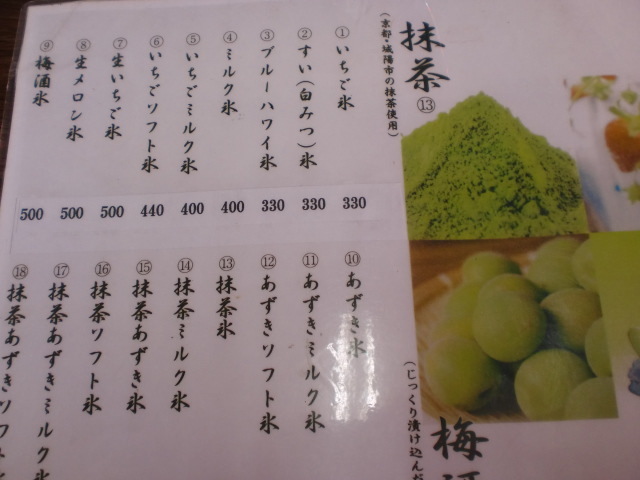 抹茶⑬
(京都・城陽市の抹茶使用)
①いちご氷
②すい(白みつ)氷
③ブルーハワイ氷
④ミルク氷
⑤いちごミルク氷
⑥いちごソフト氷
⑦生いちご氷
⑧生メロン氷
⑨梅酒氷
330
330
330
400
400
440
500
500
500
⑩あずき氷
⑪あずきミルク氷
⑫あずきソフト氷
⑬抹茶氷
⑭抹茶ミルク氷
⑮抹茶あずき氷
⑯抹茶ソフト氷
⑰抹茶あずきミルク氷
⑱抹茶あずきソフト
梅
(じっくり漬け込んだ